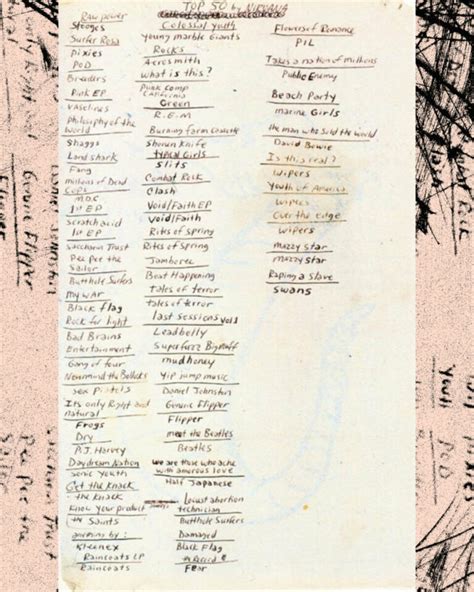 TOP 50 by NIRVANA
Raw power
Stooges
Surfer Rosa
pixies
POD
Breeders
Pink EP
vaselines
Philosophy of the
world
Shaggs
Land shark
Fang
millions of Dead
Cops
MDC
1st EP
Scratch acid
1st EP
Saccharin Trust
Pee pee the
Sailor
Butthole Surfers
My war
Black flag
Rock for light
Bad Brains
Entertainment
Gang of four
Nevermind the Bollocks
sex pistols
Its only Right and
natural
Frogs
Dry
P.J. Harvey
Daydream Nation
Sonic Youth
Get the Knack
the Knack
Know your product
the Saints
anything by:
Kleenex
Raincoats LP
Raincoats
Colossal Youth
young marble Giants
Rocks
Aerosmith
what is this?
Punk comp
California
Green
R.E.M
Burning farm cassette
Shonen Knife
Typical GIRLS
slits
Combat Rock
Clash
Void/Faith EP
Void/Faith
Rites of spring
Rites of Spring
Jamboree
Beat Happening
tales of terror
tales of terror
last sessions vol 1
Leadbelly
Superfuzz Bigmuff
mudhoney
Yip Jump music
Daniel Johnston
Generic Flipper
Flipper
meet the Beatles
Beatles
we are those who ache
with amorous love
Half Japanese
Locust abortion
technician
Butthole Surfers
Damaged
Black Flag
the Record
Fear
Flowers of Romance
PIL
Takes a nation of millions
Public Enemy
Beach Party
marine Girls
the man who sold the world
David Bowie
Is this real?
Wipers
Youth of America
Wipers
Over the edge
Wipers
mazzy star
mazzy star
Raping a Slave
swans
Generic Flipper
Flipper
Youth
POD
Pee Pee the
Sailor